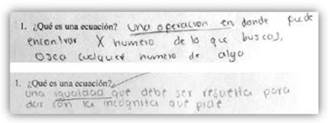 1. ¿Qué es una ecuación? Una operación en donde puede
encontrar X numero de lo que buscas,
osea cualquier numero de algo
1. ¿Qué es una ecuación?
una igualdad que debe ser resuelta para
dar con la incognita que pide